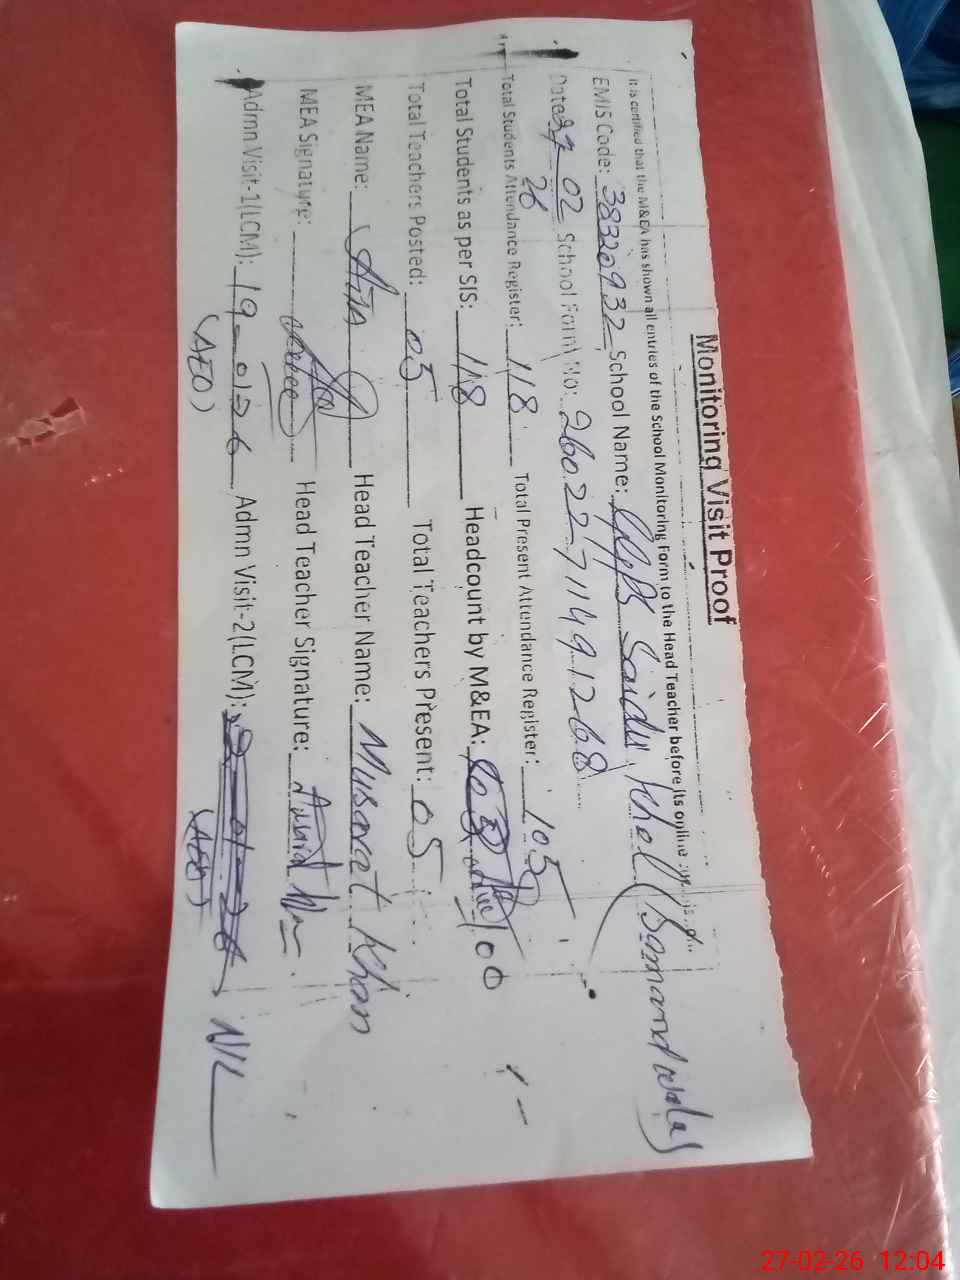 Monitoring Visit Proof
It is certified that the M&EA has shown all entries of the School Monitoring Form to the Head Teacher before its online
EMIS Code: 38320932 School Name: Saidu Khel (Samand
Date: 27-02-26 School Form No: 26022711491268
Total Students Attendance Register: 118 Total Present Attendance Register: 105
Total Students as per SIS: 118 Headcount by M&EA: 100
Total Teachers Posted: 05 Total Teachers Present: 05
MEA Name: Head Teacher Name: Musarat Khan
MEA Signature: Head Teacher Signature:
Admn Visit-1(LCM): 19-01-26 Admn Visit-2(LCM): Nil
(AEO)
27-02-26 12:04